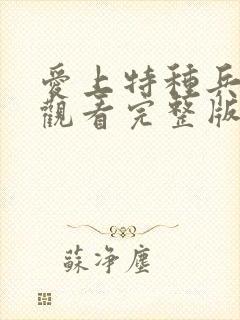 愛上特種兵
觀看完整版
蘇淨塵